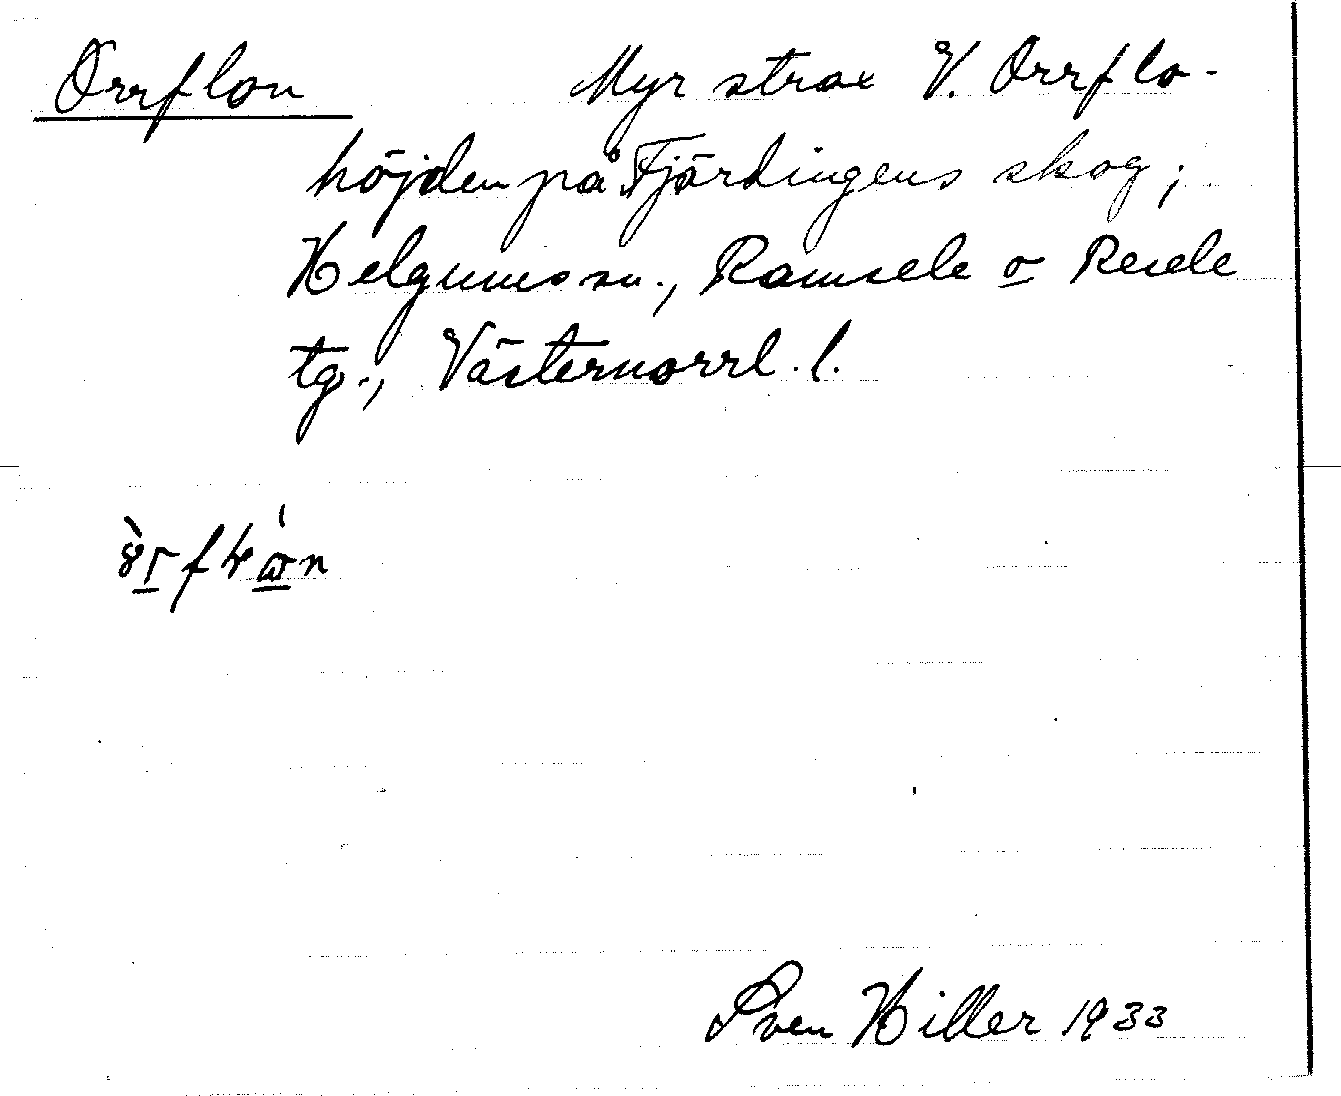 Orrflon Myr strax V. Orrflo-
höjden på Fjärdingens skog;
Helgums sn., Ramsele o Resele
tg., Västernorrl. l.
Sven Hiller 1933